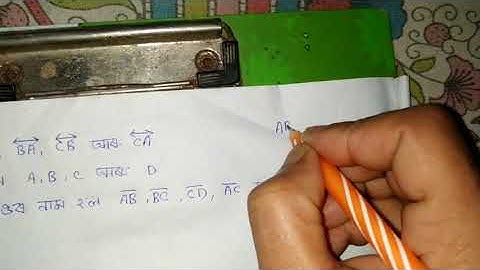 , \overleftrightarrow{BA}, \overleftrightarrow{CB} আৰু \overleftrightarrow{CA}
A, B, C আৰু D
নাম হল \overline{AB}, \overline{BC}, \overline{CD}, \overline{AC}
AB